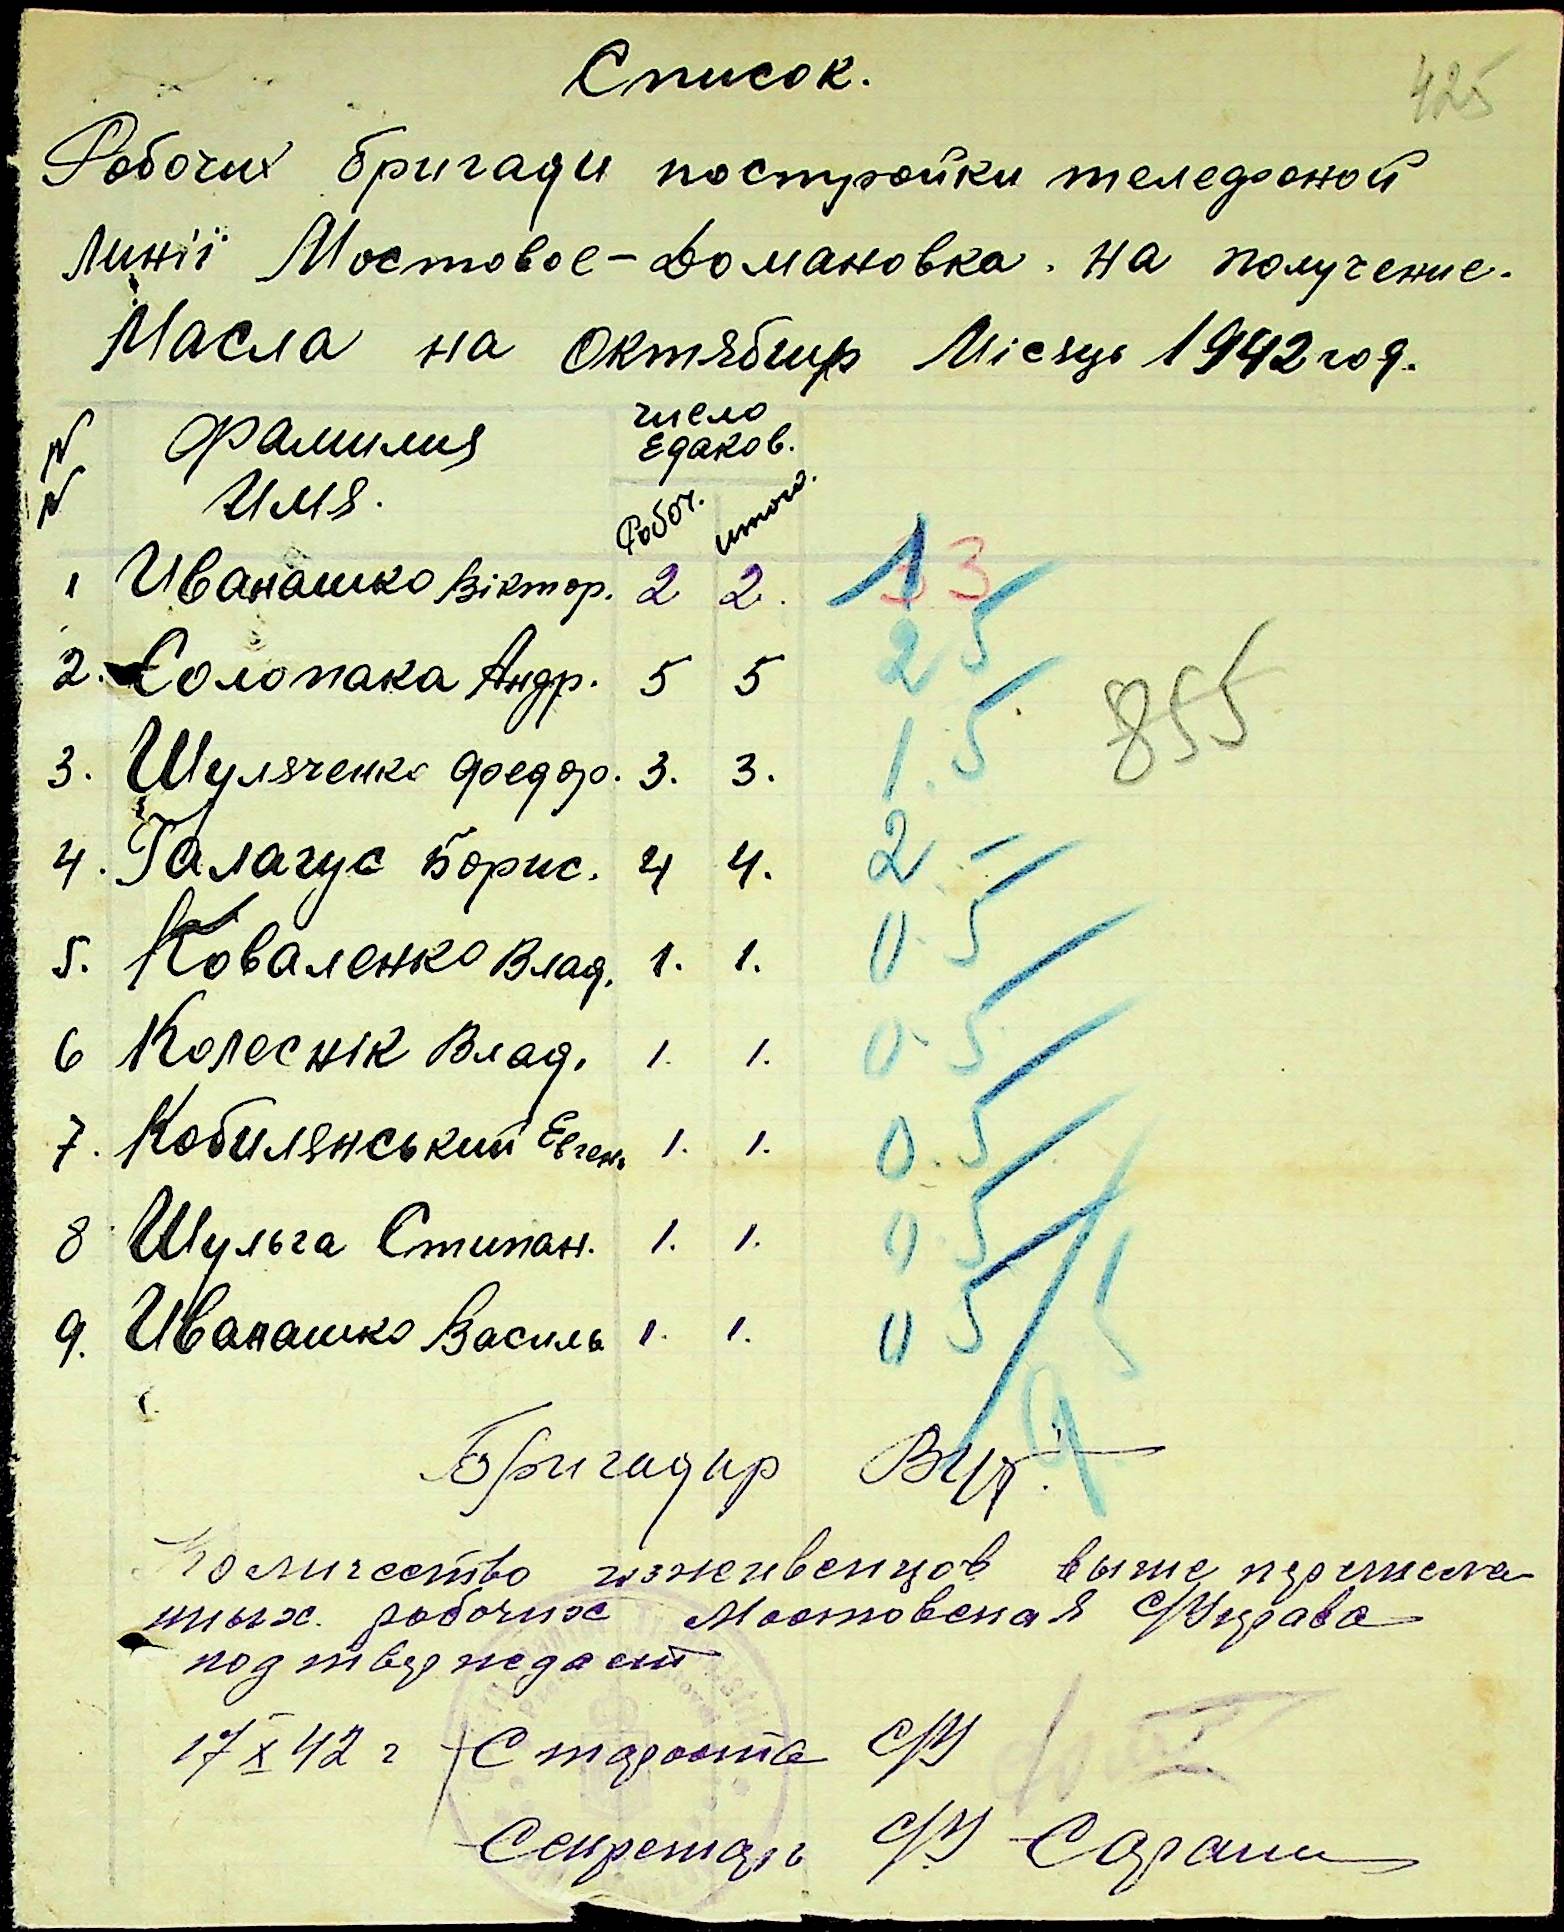 Список.
425
Робочих бригади постройки телефоной
линії Мостовое-Домановка. на получение.
Масла на октябир Місяць 1942 год.
N N
Фамилия Имя.
число едаков.
Робоч. итого.
1 Иванашко Віктор. 2 2. 1
2. Солопака Андр. 5 5 2 5
3. Шуляченко Федор. 3. 3. 1.5
855
4. Галагус Борис. 4 4. 2.–
5. Коваленко Влад. 1. 1. 0.5
6 Колеснік Влад. 1. 1. 0.5
7. Кобилянський Евген. 1. 1. 0.5
8 Шульга Стипан. 1. 1. 0.5
9. Иванашко Василь 1. 1. 0 5
Бригадир
Количество иждивенцов выше перечисле
нных рабочих Мостовская с/Управа
подтверждает
17 X 42 г Староста с/У
Секретарь с/У